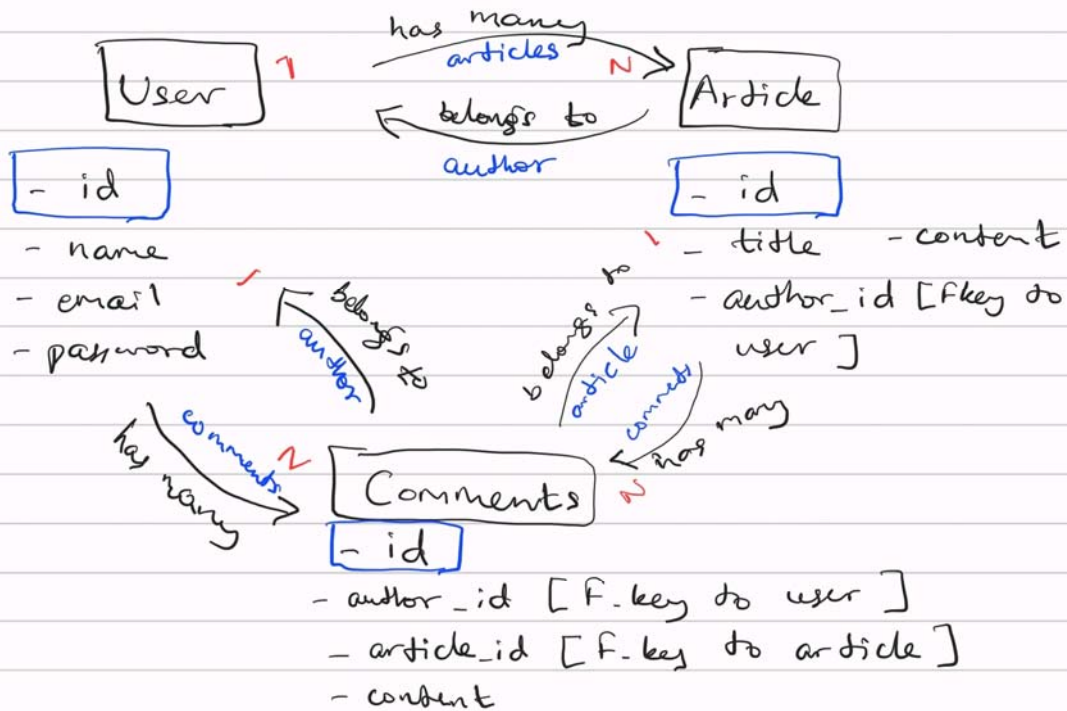 has many
articles
User
1
N
Article
belongs to
author
- id
- name
- email
- password
- id
- title - content
- author_id [Fkey to
user ]
1
belongs to
author
1
belongs to
article
comments
has many
N
comments
has many
N
Comments
- id
- author_id [ F.key to user ]
- article_id [ F-key to article ]
- content